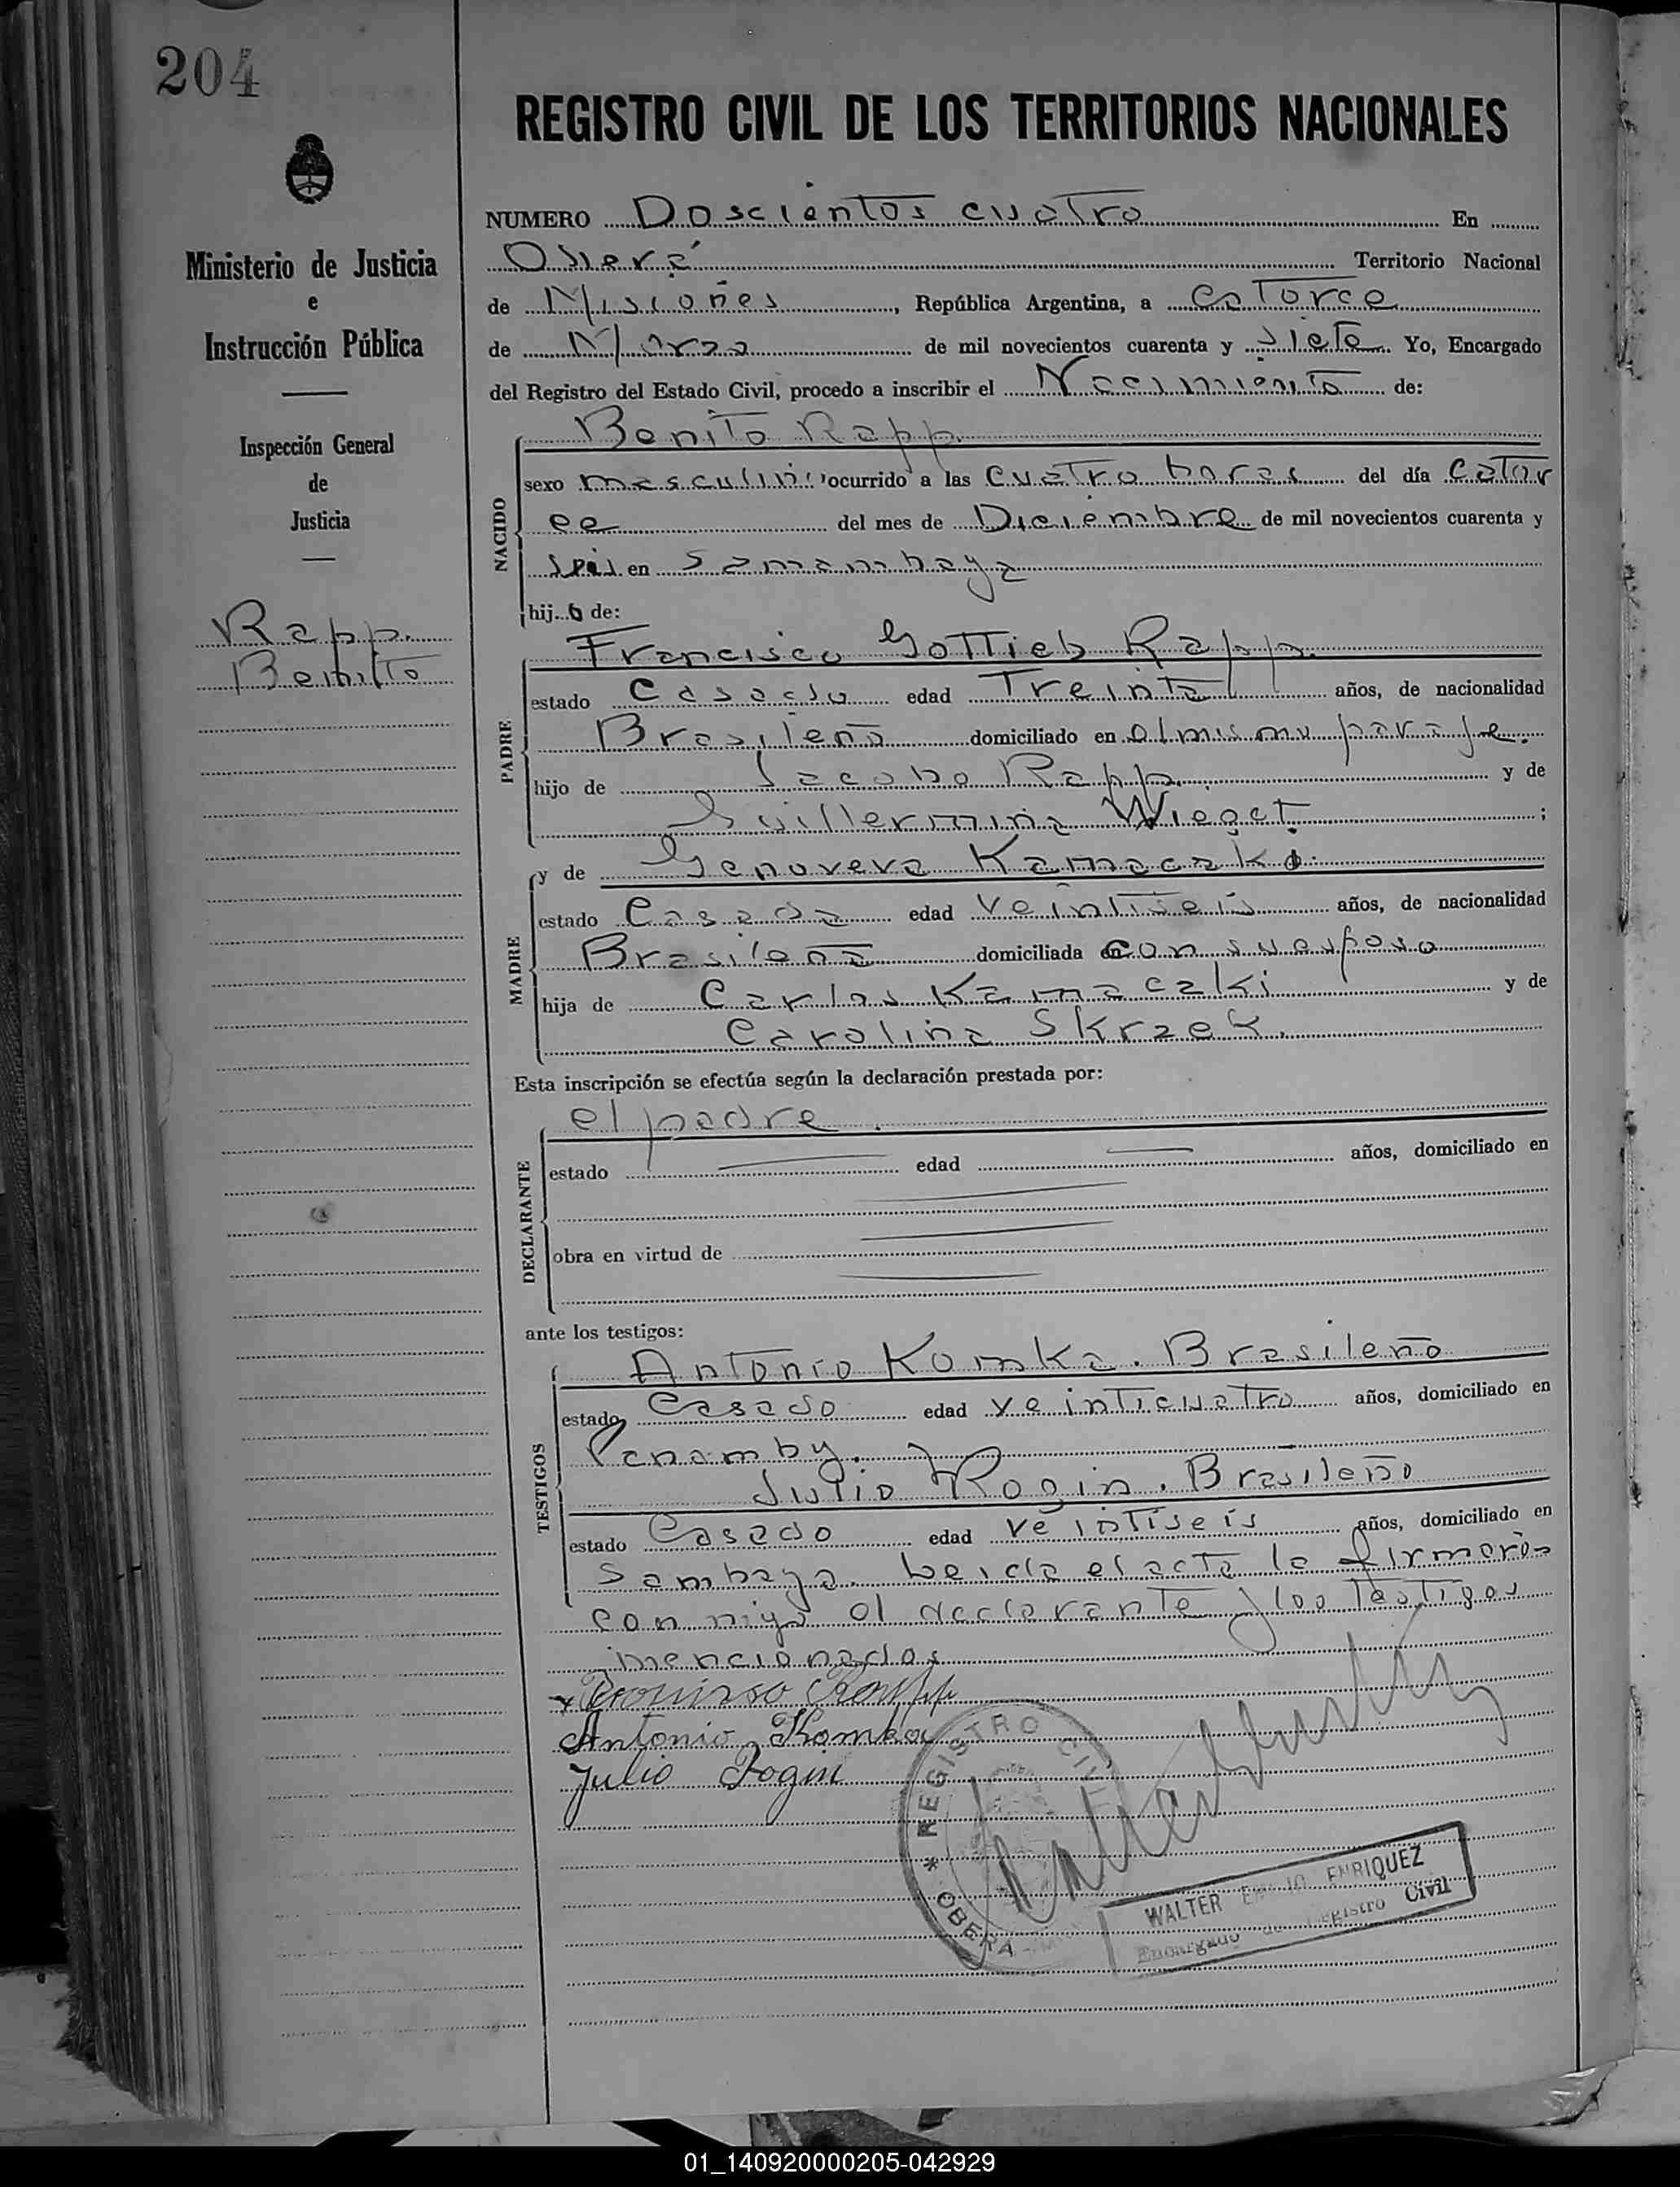 204
REGISTRO CIVIL DE LOS TERRITORIOS NACIONALES
Ministerio de Justicia
e
Instrucción Pública
Inspección General
de
Justicia
Rapp.
Benito
NUMERO Doscientos cuatro En
Oberá Territorio Nacional
de Misiones, República Argentina, a Catorce
de Marzo de mil novecientos cuarenta y siete Yo, Encargado
del Registro del Estado Civil, procedo a inscribir el Nacimiento de:
Benito Rapp.
NACIDO
sexo masculino ocurrido a las Cuatro horas del día Cator
ce del mes de Diciembre de mil novecientos cuarenta y
seis en Samambaya
hijo de:
Francisco Gottieb Rapp.
PADRE
estado Casado edad Treinta años, de nacionalidad
Brasileño domiciliado en el mismo paraje.
hijo de Jacobo Rapp. y de
Guillermina Wieget. ;
y de Genoveva Kamacak
MADRE
estado Casada edad Veintiseis años, de nacionalidad
Brasileña domiciliada con su esposo
hija de Carlos Kamaczki y de
Carolina Skrzek.
Esta inscripción se efectúa según la declaración prestada por:
el padre.
DECLARANTE
estado edad años, domiciliado en
obra en virtud de
ante los testigos:
Antonio Komka. Brasileño
TESTIGOS
estado Casado edad veinticuatro años, domiciliado en
Panamby.
Julio Rogin. Brasileño
estado Casado edad veintiseis años, domiciliado en
Sambaya. Leida el acta la firmaron
conmigo el declarante y los testigos
mencionados
Rapp
Antonio Komka
Julio Rogin
* REGISTRO CIVIL
OBERÁ
WALTER EMILIO ENRIQUEZ
Encargado del Registro Civil
01_140920000205-042929